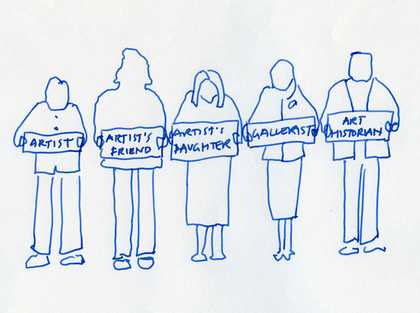 ARTIST
ARTIST'S
FRIEND
ARTIST'S
DAUGHTER
GALLERIST
ART
HISTORIAN